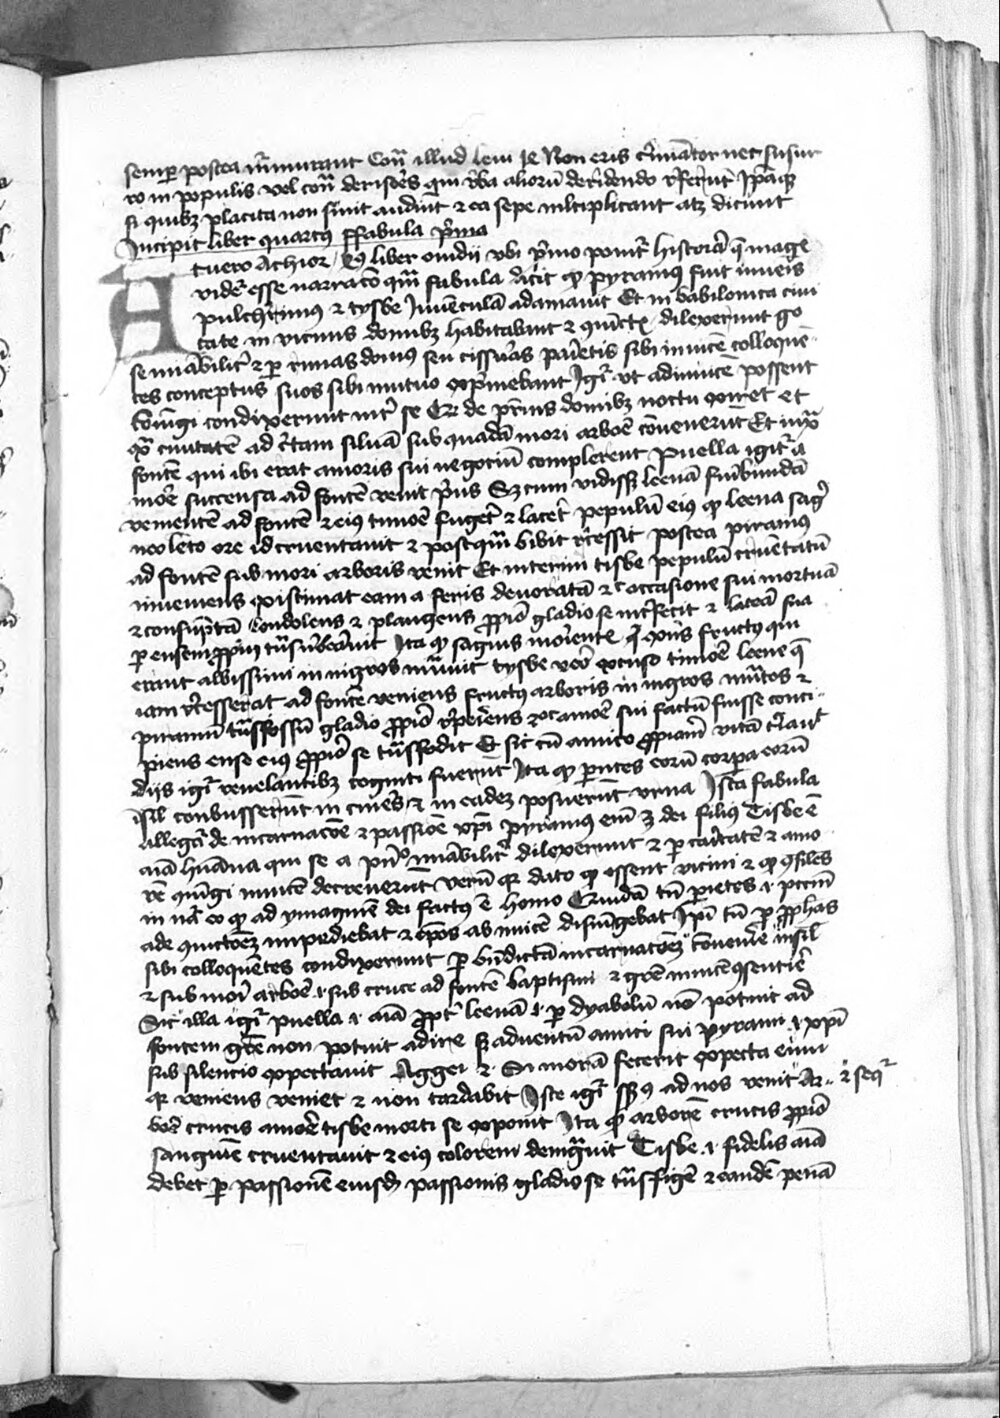 semper postea murmurant Contra illud leui 19 Non eris criminator nec susur
ro in populis vel contra derisores qui verba aliorum deridendo referunt
si quibus placita non sunt audiunt et ea sepe multiplicant atque dicunt
Incipit liber quartus ffabula prima
At vero Achior iiijus liber ouidij vbi primo ponitur historia que magis
videtur esse narratio quam fabula dicit quod pyramus fuit iuuenis
pulcherrimus et tysbe Iuuenculam adamauit Et in babilonica ciui
tate in vicinis domibus habitabant et dilexerunt se
mirabiliter et per rimas domus seu cissuras parietis sibi inuicem colloquen
tes conceptus suos sibi mutuo exprimebant Igitur vt adinuicem possent
coniungi condixerunt inter se de patrum domibus noctu exirent et
extra ciuitatem ad certam siluam sub quadam mori arbore conuenerunt Et iuxta
fontem qui ibi erat amoris sui negocium complerent Puella igitur a
more succensa ad fontem venit prius Sed cum vidisset leenam furibundam
venientem ad fontem et eius timore fugeret et laceret pepulum eius quod leena sagwi
neolento ore id cruentauit et postquam bibit recessit postea piramus
ad fontem sub mori arboris venit Et interim tisbe pepulum cruentatum
inueniens existimat eam a feris deuoratam et occasione sui mortuam
et consumptam Condolens et plangens proprio gladio se interfecit et latera sua
per ensem proprium transuerberauit Ita quod sagwis morientis fructus qui
erant albissimi in nigros mutauit tysbe vero excusso timore leene que
iam recesserat ad fontem veniens fructus arboris in nigros mutatos et
piramum transfossum gladio proprio reperiens et ob amorem sui factum fuisse conci
piens ense eius proprio se transfodit Et sic cum amico propriam vitam
dijs igitur reuelantibus cogniti fuerunt Ita quod parentes eorum corpora eorum
simul conbusserunt in cineres et in eadem posuerunt vrna Ista fabula
allegatur de incarnatione et passione christi pyramus enim est dei filius Tisbe est
anima humana qui se a principio mirabiliter dilexerunt et per caritatem et amo
rem coniungi inuicem decreuerunt verum quia dato quod essent vicini et quod consimiles
in natura eo quod ad ymaginem dei factus est homo tamen paries .i. peccatum
ade coniunctionem impediebat et ipsos ab inuicem disiungebat Ipsi tamen per prophetas
sibi colloquentes condixerunt per benedictam incarnationem conuenire insimul
et sub mori arbore .i. sub cruce ad fontem baptismi et gratie inuicem consentire
Sic illa igitur puella .i. anima propter leenam .i. per dyabolum non potuit ad
fontem gratie non potuit adire sed aduentum amici sui pyrami .i. christi
sub silencio expectauit Aggei 2 Si moram fecerit expecta eum
quia veniens veniet et non tardabit Iste igitur filius ad nos venit Ar- et sequitur
bore crucis amore tisbe morti se exposuit Ita quod arborem crucis proprio
sanguine cruentauit et eius colorem denigrauit Tisbe .i. fidelis anima
debet per passionem eiusdem passionis gladio se transfigere et eandem penam